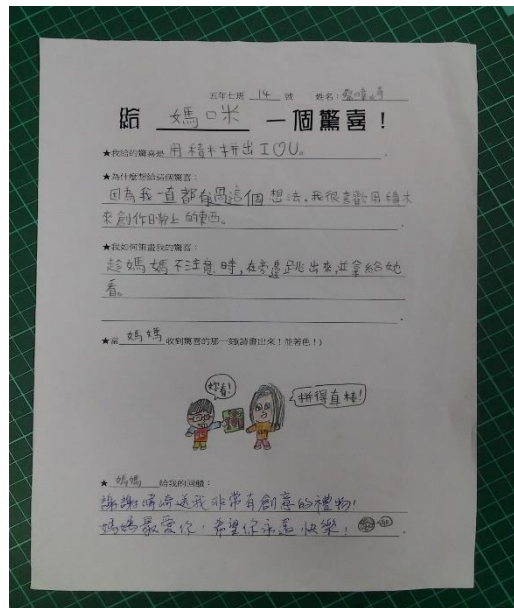 五年七班 14 號 姓名：
給 媽咪 一個驚喜！
★我給的驚喜是 用積木拼出I♡U。
★為什麼想給這個驚喜：
因為我一直都有過這個想法，我很喜歡用積木
來創作日常上的東西。
★我如何策畫我的驚喜：
趁媽媽不注意時，在旁邊跳出來，並拿給她
看。
★當 媽媽 收到驚喜的那一刻(請畫出來！並著色！)
妳看！
拼得真棒！
★ 媽媽 給我的回饋：
謝謝 送我非常有創意的禮物！
媽媽最愛你，希望你永遠快樂！